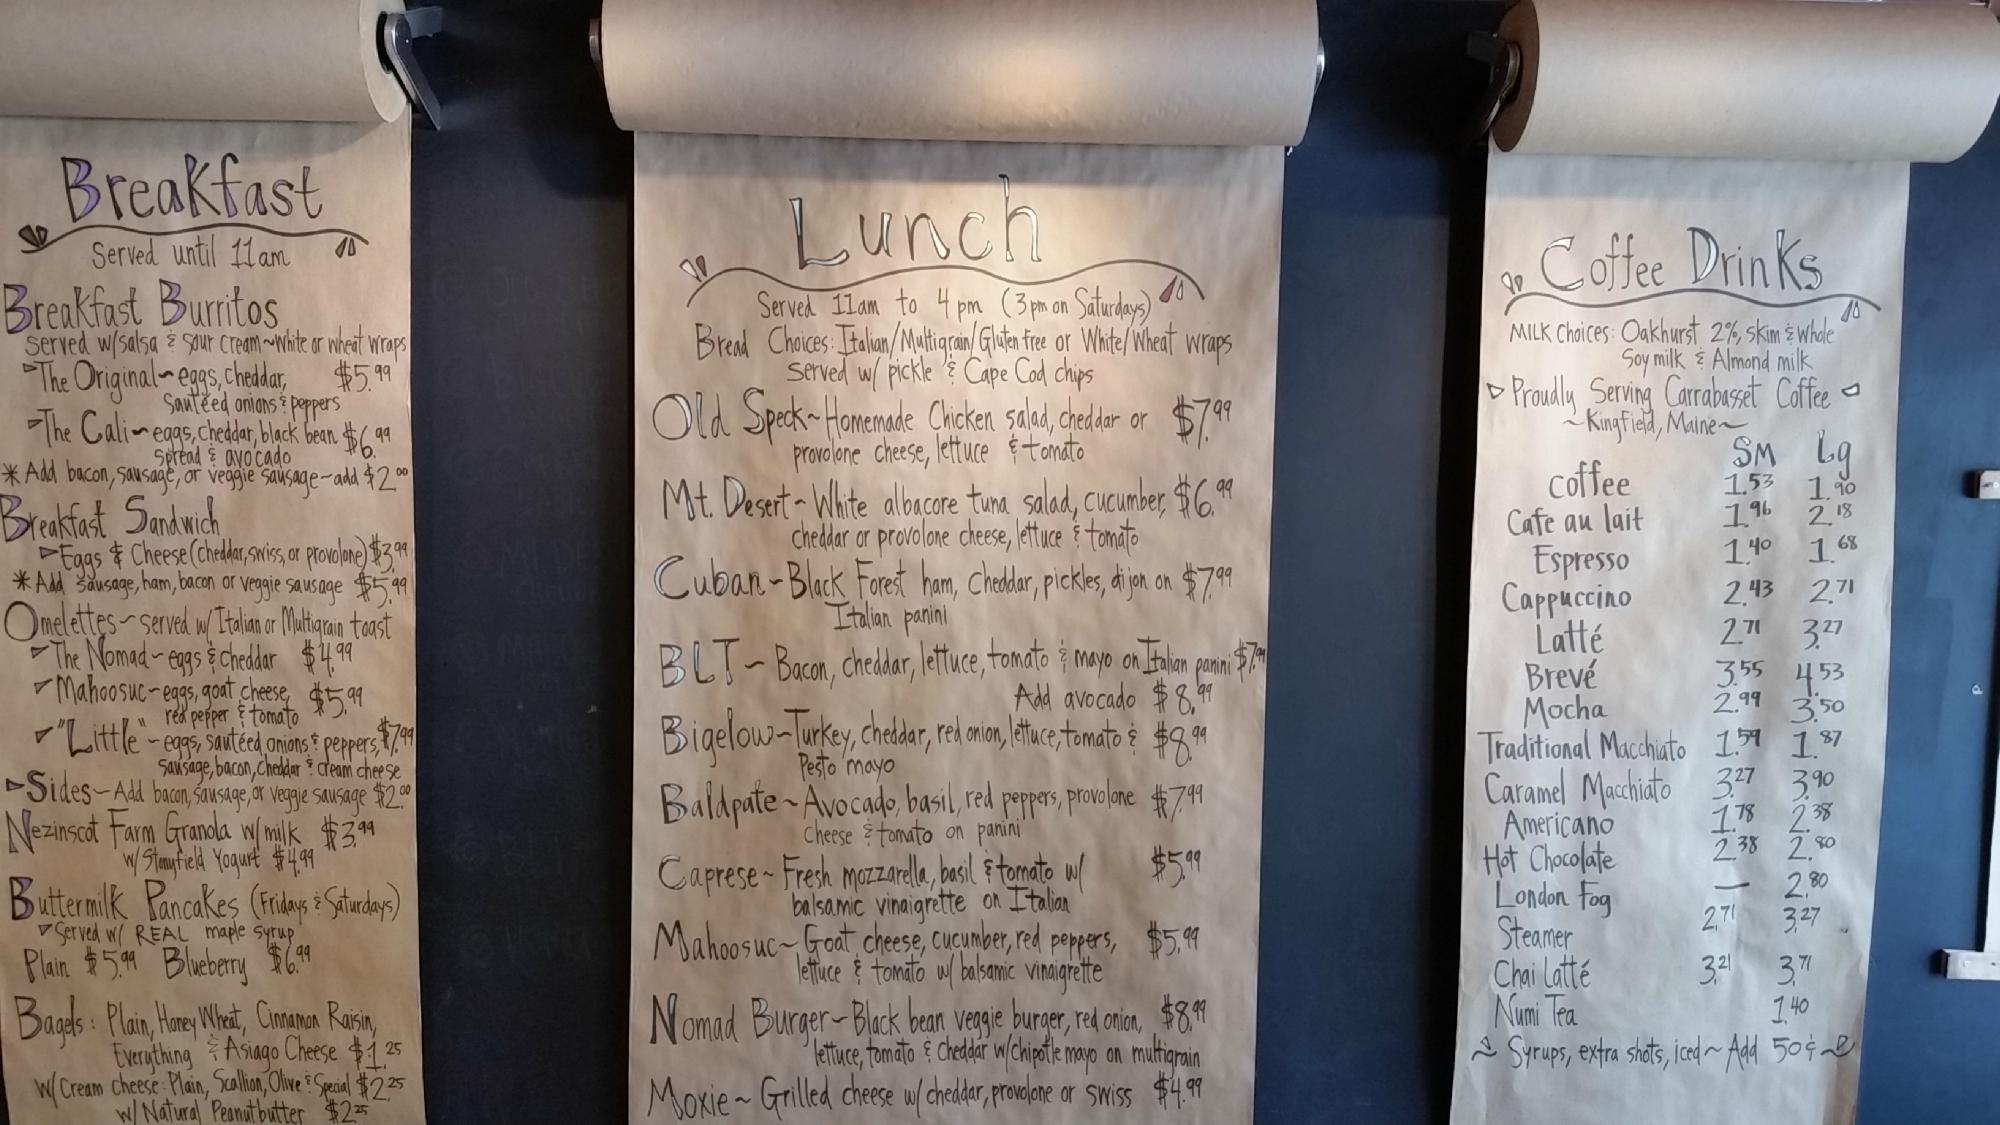 Breakfast
Served until 11am
Breakfast Burritos
served w/salsa & sour cream~white or wheat wraps
The Original~eggs, cheddar, $5.99
Sautéed onions & peppers
The Cali~eggs, cheddar, black bean $6.99
spread & avocado
*Add bacon, sausage, or veggie sausage~add $2.00
Breakfast Sandwich
Eggs & Cheese (cheddar, swiss, or provolone) $3.99
*Add sausage, ham, bacon or veggie sausage $5.99
Omelettes~served w/ Italian or Multigrain toast
The Nomad~eggs & cheddar $4.99
Mahoosuc~eggs, goat cheese, $5.99
red pepper & tomato
"Little"~eggs, sautéed onions & peppers, $7.99
sausage, bacon, cheddar & cream cheese
Sides~Add bacon, sausage, or veggie sausage $2.00
Nezinscot Farm Granola w/milk $3.99
w/Stonyfield Yogurt $4.99
Buttermilk Pancakes (Fridays & Saturdays)
Served w/ REAL maple syrup
Plain $5.99 Blueberry $6.99
Bagels: Plain, Honey Wheat, Cinnamon Raisin,
Everything & Asiago Cheese $1.25
w/Cream cheese: Plain, Scallion, Olive & Special $2.25
w/ Natural Peanutbutter $2.25
Lunch
Served 11am to 4pm (3pm on Saturdays)
Bread Choices: Italian/Multigrain/Gluten free or White/Wheat wraps
Served w/ pickle & Cape Cod chips
Old Speck~Homemade Chicken salad, cheddar or $7.99
provolone cheese, lettuce & tomato
Mt. Desert~White albacore tuna salad, cucumber, $6.99
cheddar or provolone cheese, lettuce & tomato
Cuban~Black Forest ham, Cheddar, pickles, dijon on $7.99
Italian panini
BLT~Bacon, cheddar, lettuce, tomato & mayo on Italian panini $7.99
Add avocado $8.99
Bigelow~Turkey, cheddar, red onion, lettuce, tomato & $8.99
Pesto mayo
Baldpate~Avocado, basil, red peppers, provolone $7.99
Cheese & tomato on panini
Caprese~Fresh mozzarella, basil & tomato w/ $5.99
balsamic vinaigrette on Italian
Mahoosuc~Goat cheese, cucumber, red peppers, $5.99
lettuce & tomato w/ balsamic vinaigrette
Nomad Burger~Black bean veggie burger, red onion, $8.99
lettuce, tomato & Cheddar w/chipotle mayo on multigrain
Moxie~Grilled cheese w/ cheddar, provolone or swiss $4.99
Coffee Drinks
MILK Choices: Oakhurst 2%, Skim & Whole
Soy milk & Almond milk
Proudly Serving Carrabasset Coffee
~Kingfield, Maine~
SM Lg
Coffee 1.53 1.90
Cafe au lait 1.96 2.18
Espresso 1.40 1.68
Cappuccino 2.43 2.71
Latté 2.71 3.27
Brevé 3.55 4.53
Mocha 2.99 3.50
Traditional Macchiato 1.59 1.87
Caramel Macchiato 3.27 3.90
Americano 1.78 2.38
Hot Chocolate 2.38 2.80
London Fog — 2.80
Steamer 2.71 3.27
Chai Latté 3.21 3.71
Numi Tea 1.40
Syrups, extra shots, iced~Add 50¢